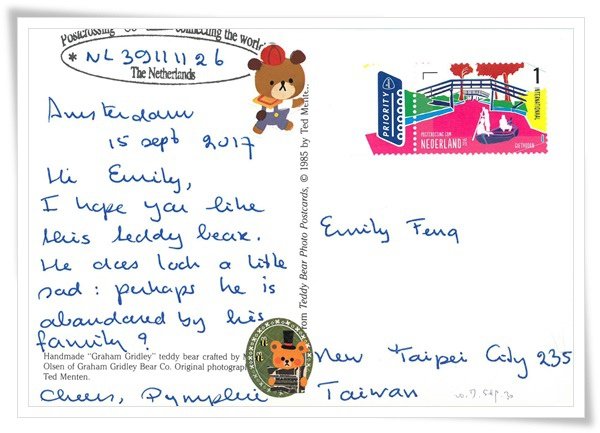 Postcrossing
connecting the world
* NL 3911126
The Netherlands
Amsterdam
15 sept 2017
Hi Emily,
I hope you like
this teddy bear.
He does look a little
sad: perhaps he is
abandoned by his
family?
Handmade "Graham Gridley" teddy bear crafted by
Olsen of Graham Gridley Bear Co. Original photograp
Ted Menten.
Cheers,
from Teddy Bear Photo Postcards, © 1985 by Ted Menten.
PRIORITY
1
INTERNATIONAL
POSTCROSSING.COM
NEDERLAND
GIETHOORN
Emily Feng
New Taipei City 235
Taiwan